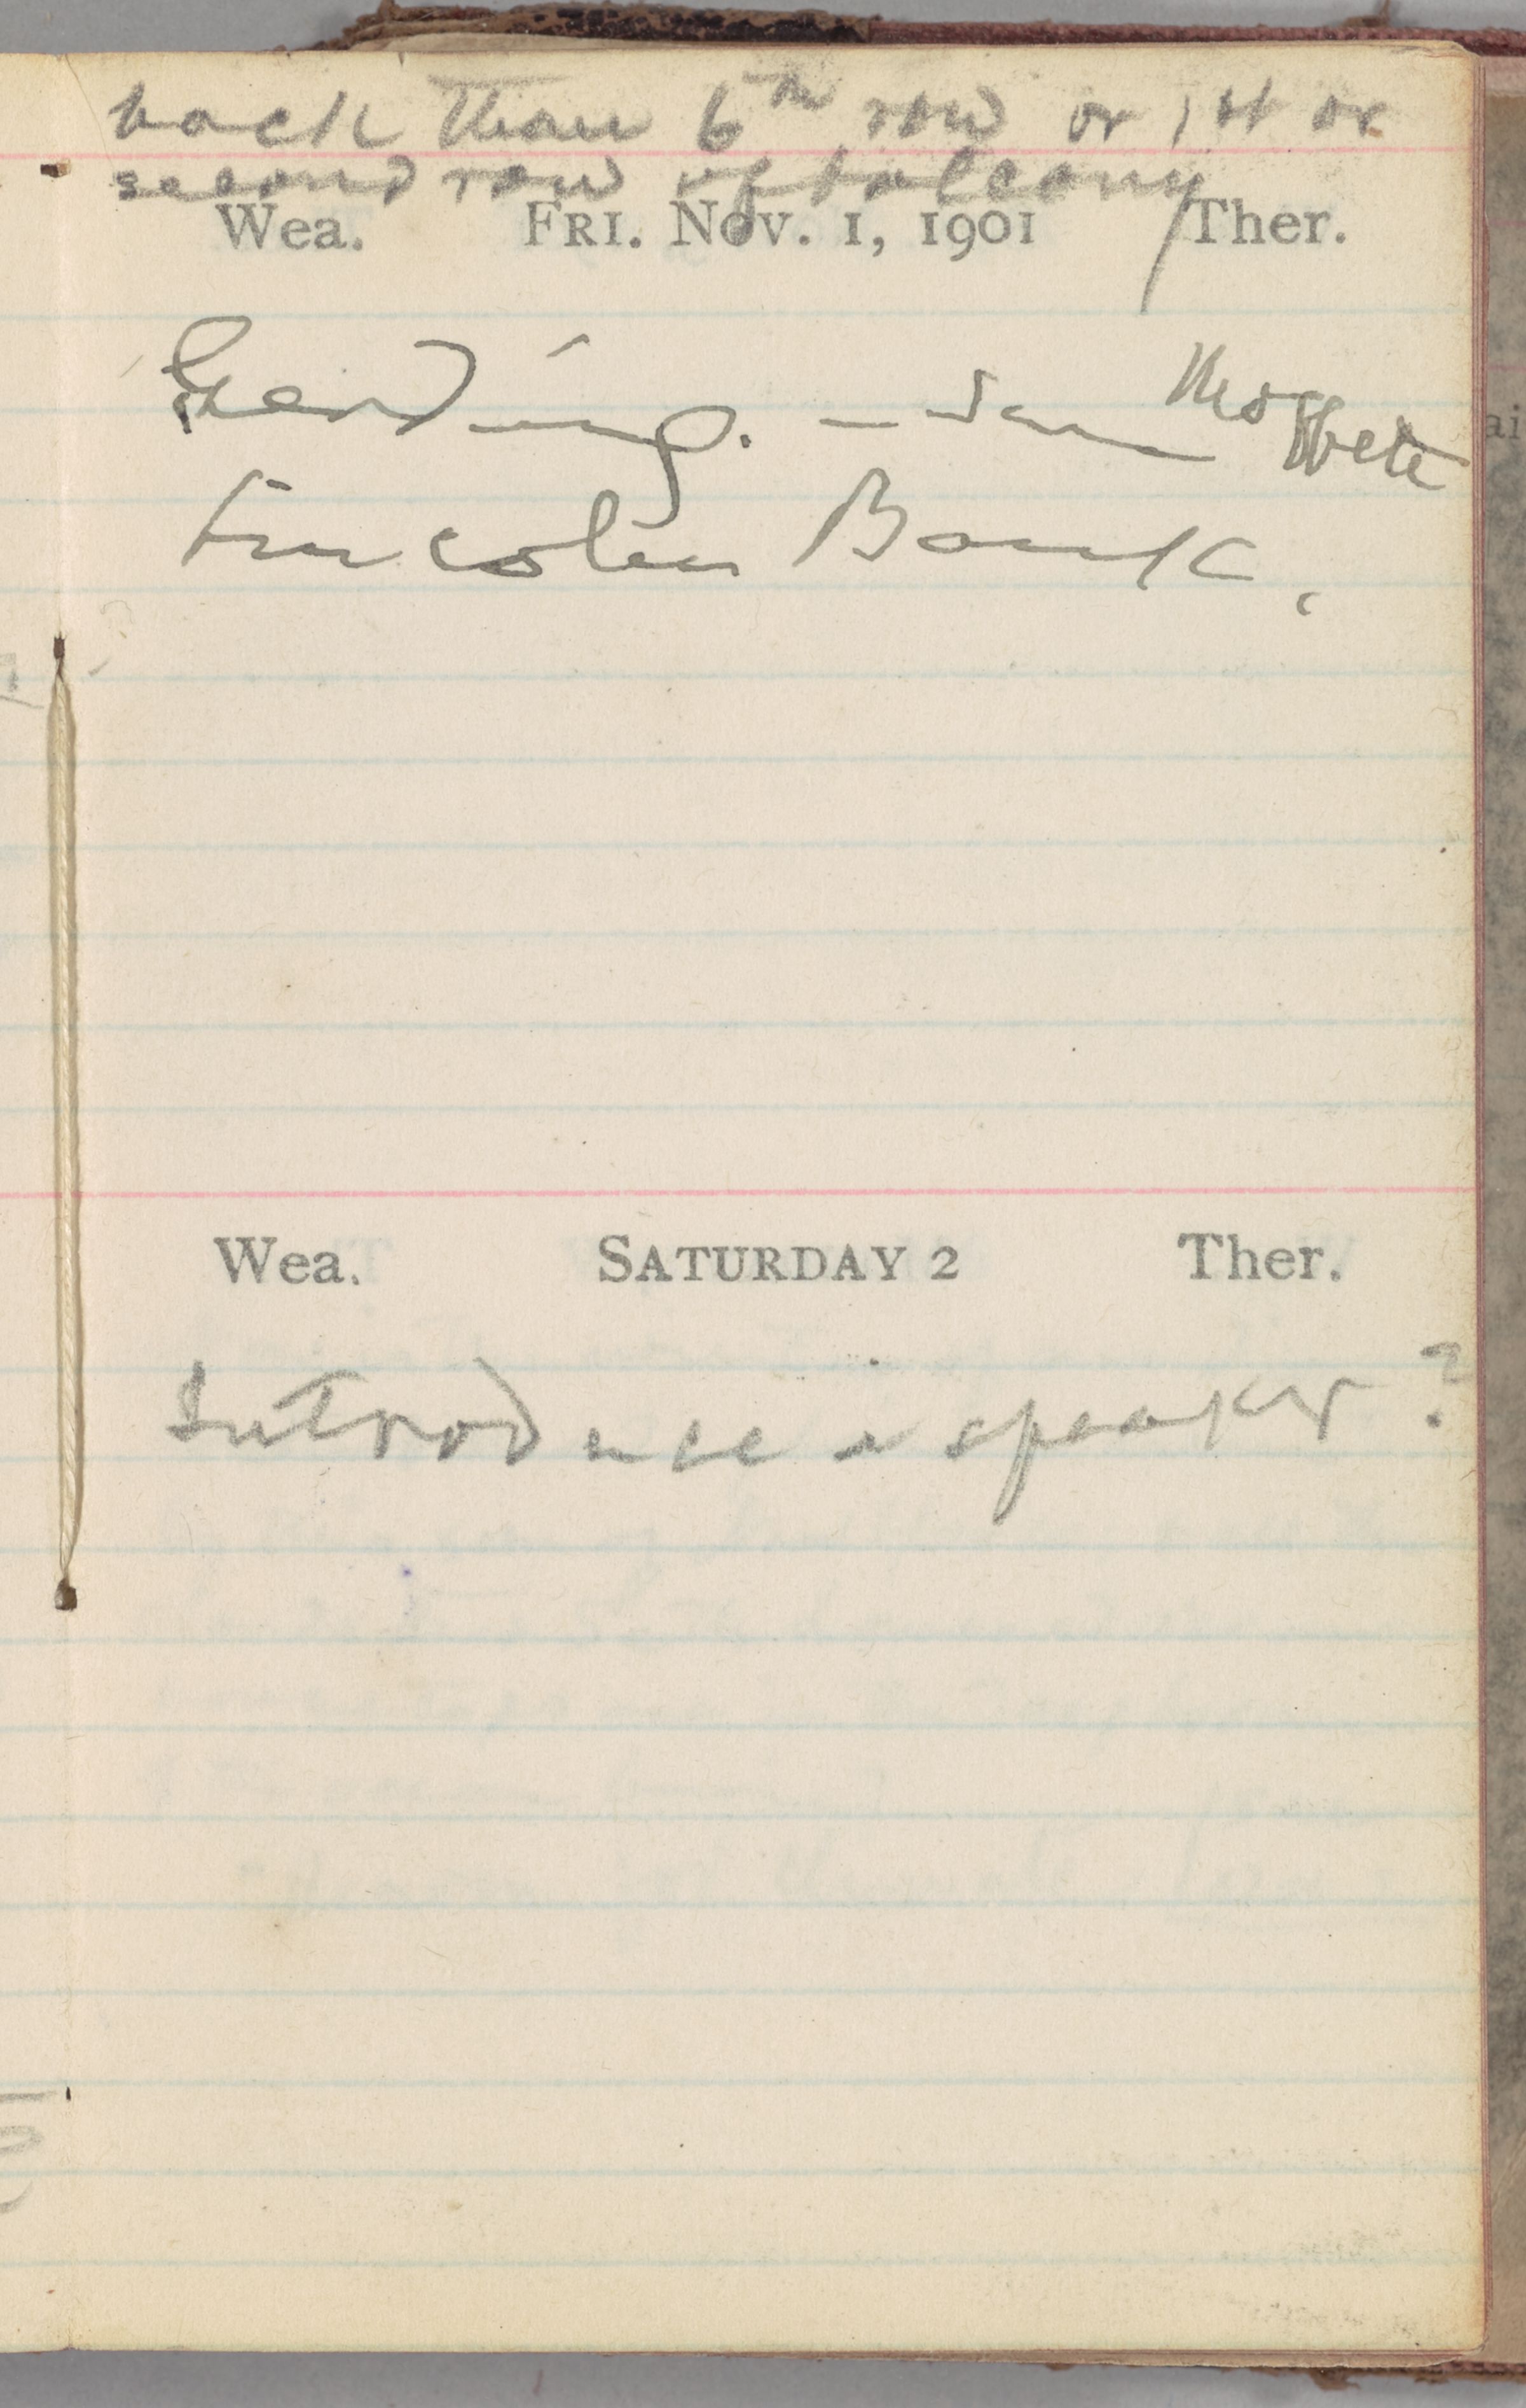 back than 6th row or 1st or
second row of balcony
Wea. FRI. NOV. 1, 1901 Ther.
Sam Moffett
Lincoln Bank.
Wea. SATURDAY 2 Ther.
Introduce a speaker?